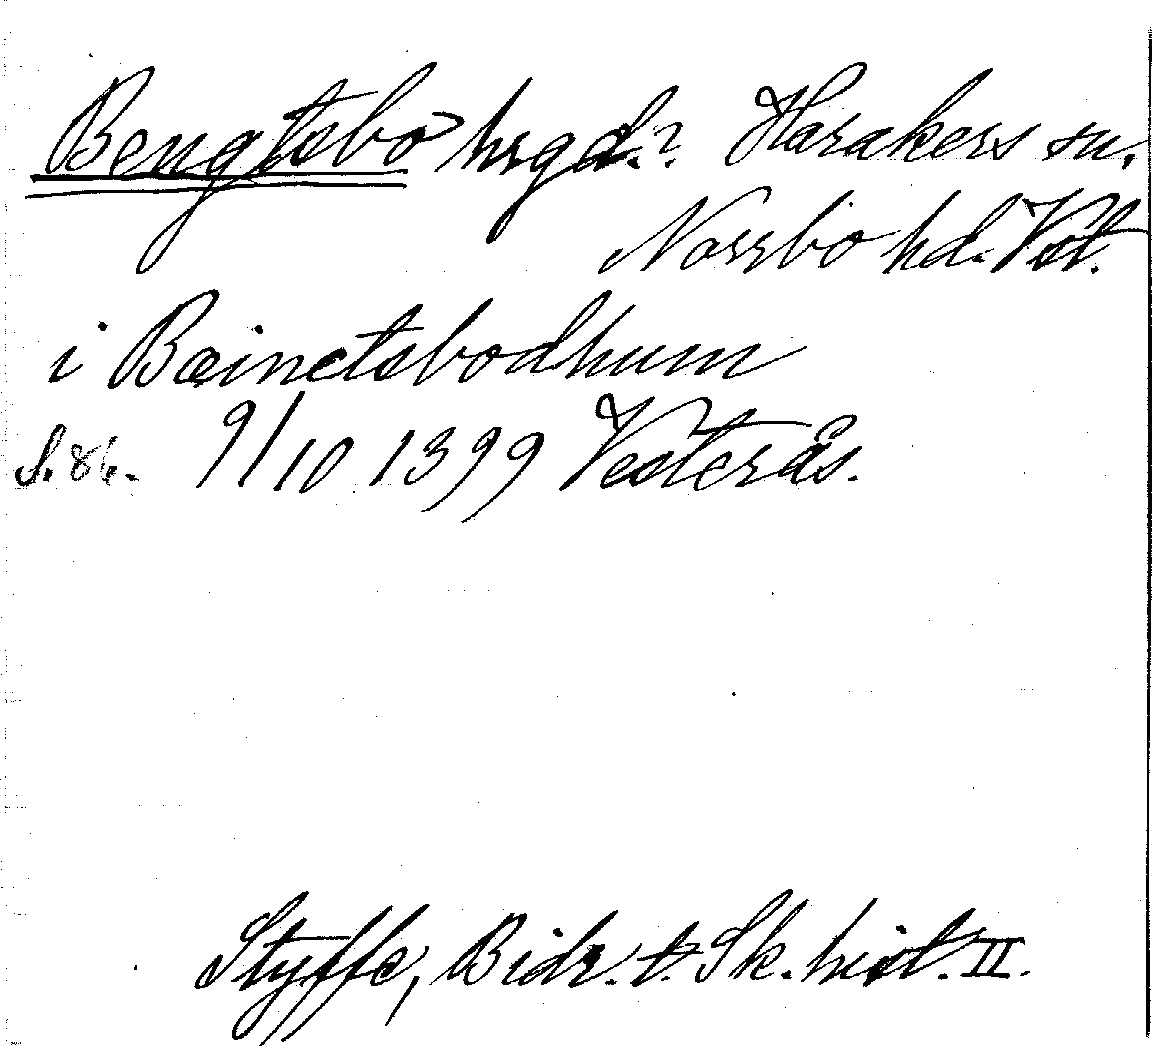 Bengtsbo hrgd.? Harakers sn.
Norrbo hd. Vst.
i Bæinctsbodhum
S. 86. 9/10 1399 Vesterås.
Styffe, Bidr. t. Sk. hist. II.